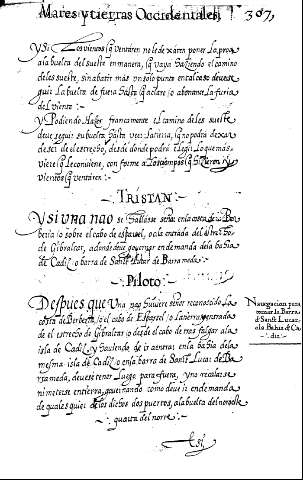 Mares y tierras Occidentales, 307,
y si Los vientos q̃ ventaren no le dexaren poner La proa
ala buelta del sueste en manera, q̃ vaya haziendo el camino
delas sueste, sin abatir mas un solo punto en tal caso deve se
guir La buelta de fuera hasta q̃ aclare o abonance La furia
del viento :
y Podiendo Hazer francamente el camino de les sueste
deve seguir su buelta hasta ver La tierra, q̃ no podra dexar
de ser de el estrecho, desde donde podra elegir Lo que mas
viere q̃ Le conviene, con forme a Los tiempos q̃ hizieren, y
vientos q̃ ventaren :
TRISTAN
Y si una nao se hallasse señor en la costa de la Ber
beria o sobre el cabo de espartel, o ala entrada del estrecho
de Gibraltar, a donde deve governar en demanda de la bahia
de Cadiz o barra de Sant Lucar de Barrameda :
Piloto
Despues que Una nao huviere señor reconoscido La
costa de Berberia, o el cabo de Espartel, o La tierra y entrada
de el estrecho de Gibraltar o desde el cabo de tres falgar ala
isla de Cadiz, y haviendo de ir aentrar en la bahia dela
mesma isla de Cadiz o en la barra de Sant Lucas de Ba
rrameda, deve se tener Luego para fuera, y no recalarse
ni meterse en tierra, governando como deve ir en demanda
de quales quier de los dichos dos puertos, ala buelta del noroeste
quarta del norte :
Navegacion para
tomar la Barra
de Sant Lucar,
o la Bahia de Ca
diz :
Esi